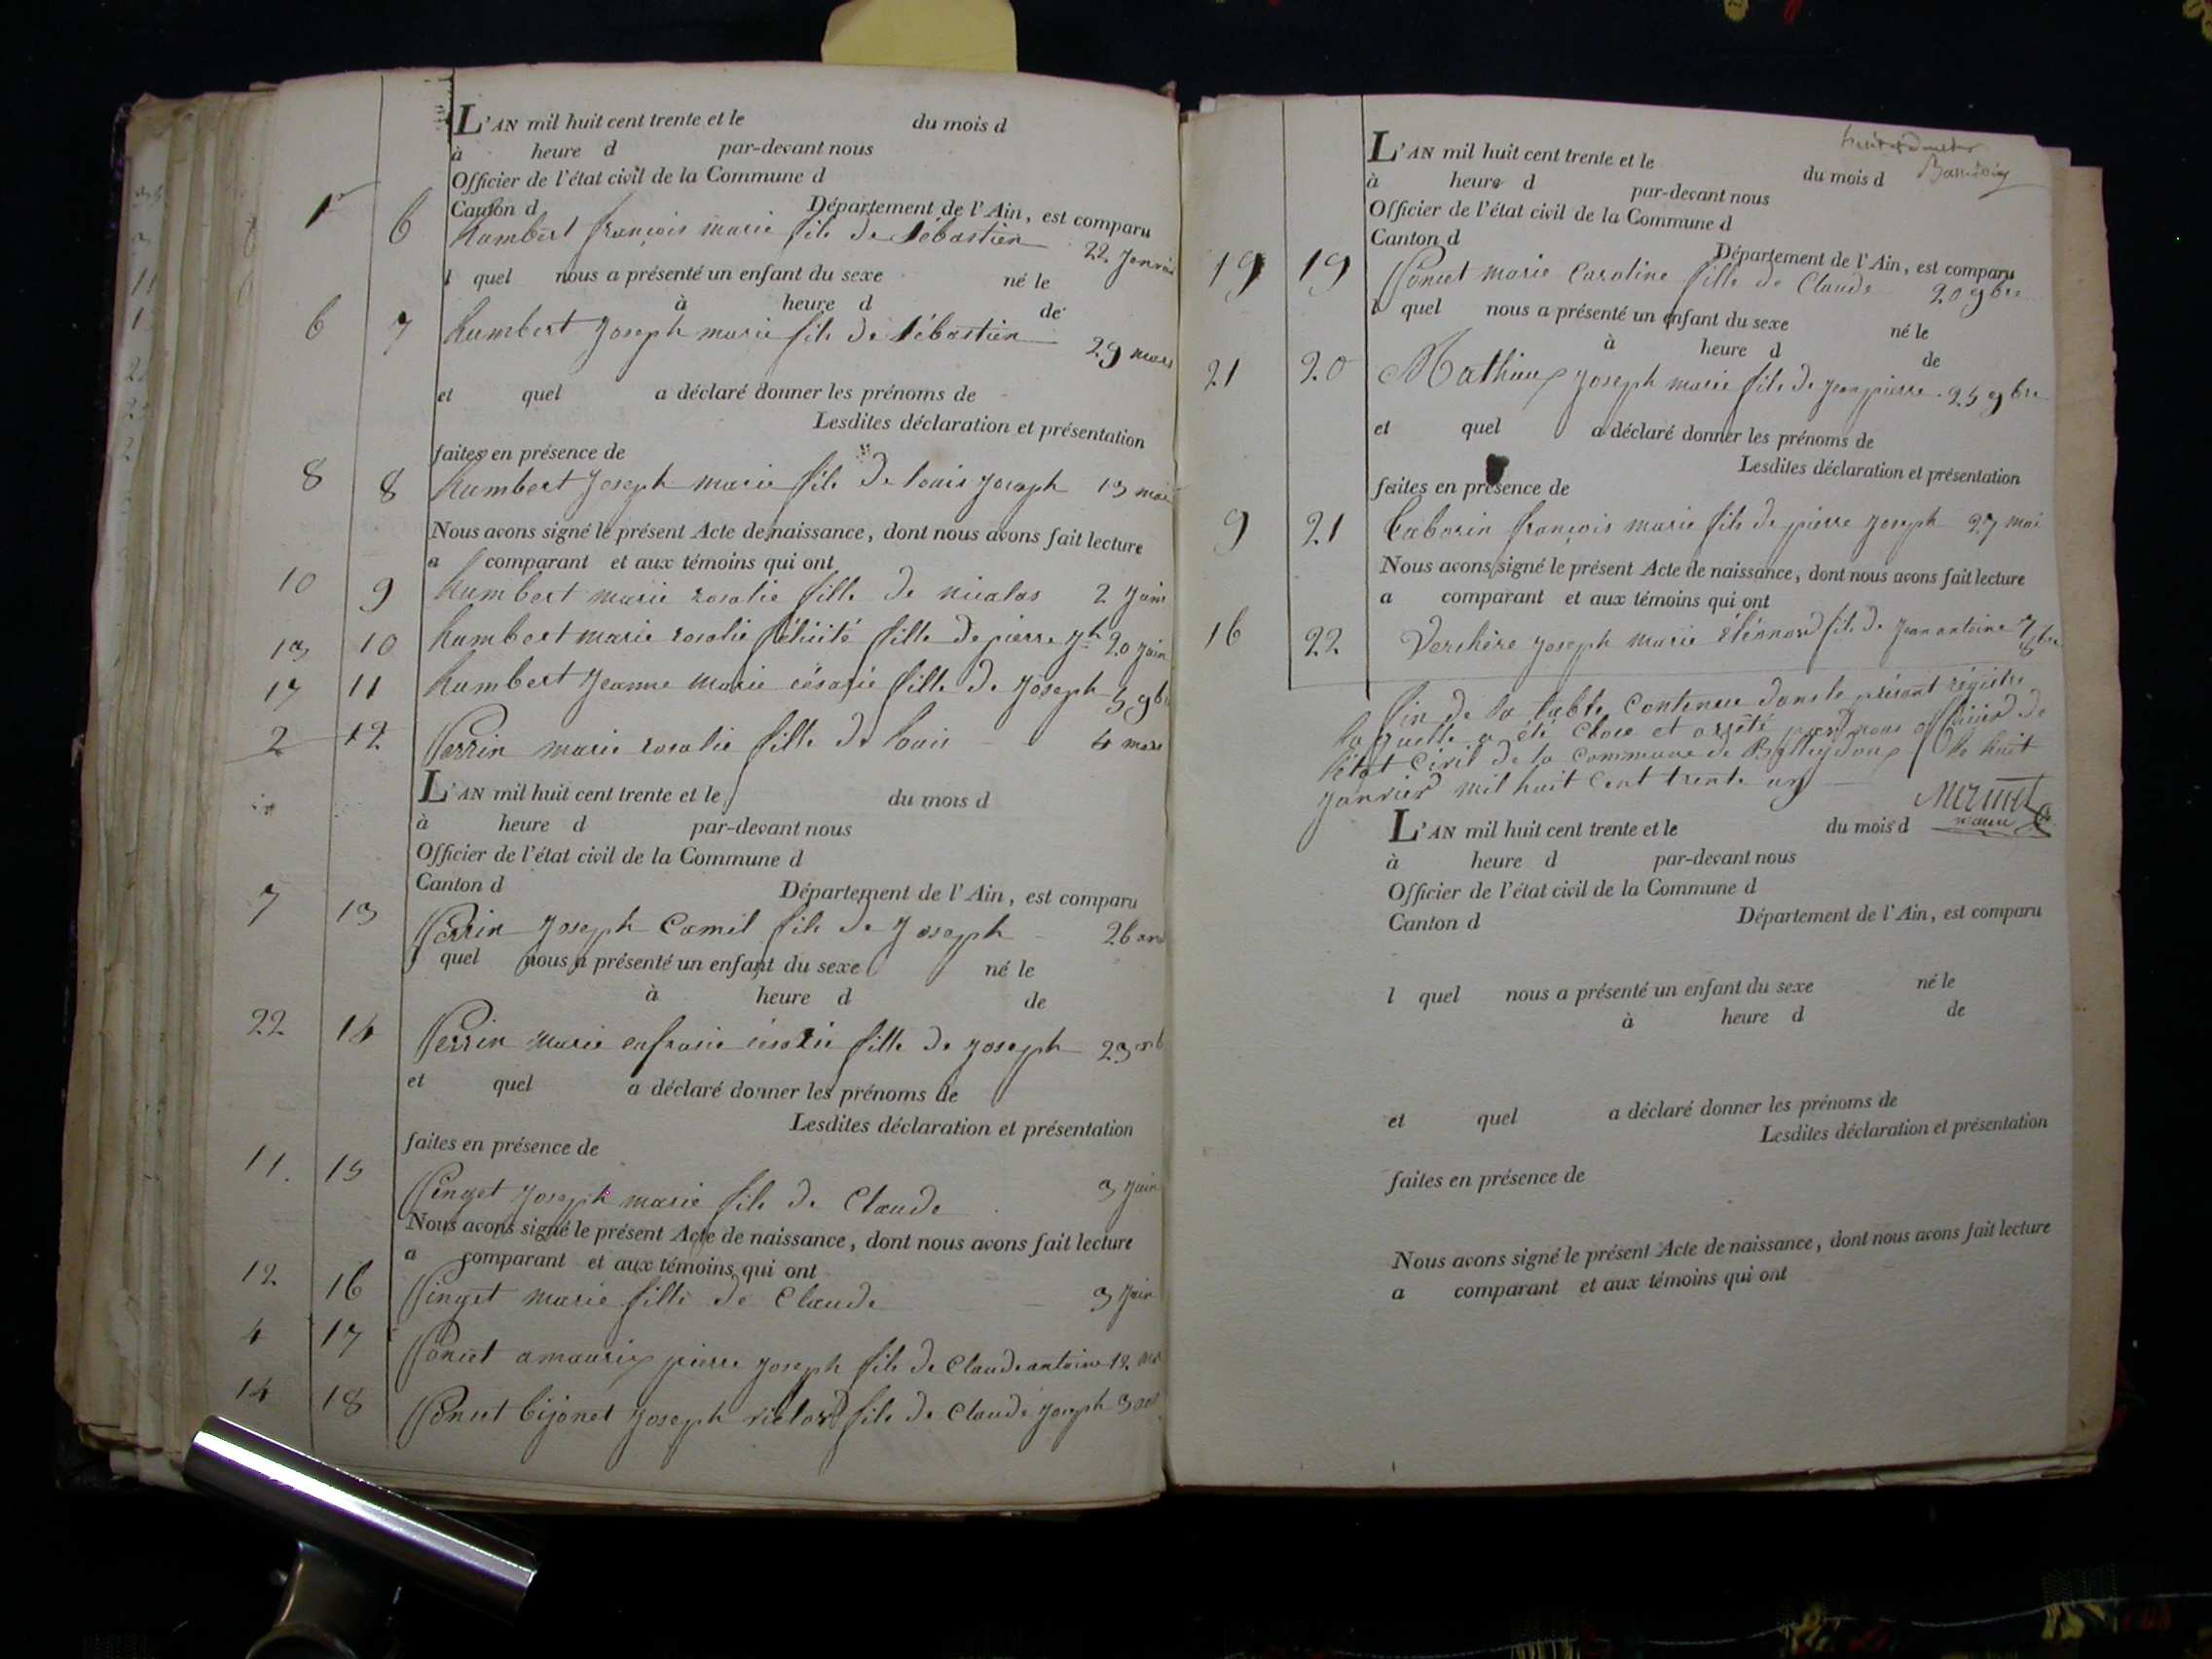 L'AN mil huit cent trente et le du mois d
à heure d par-devant nous
Officier de l'état civil de la Commune d
Canton d Département de l'Ain, est comparu
1 6 humbert françois marie fils de Sébastien 22 Janvier
l quel nous a présenté un enfant du sexe né le
à heure d de
6 7 humbert Joseph marie fils de Sébastien 29 mars
et quel a déclaré donner les prénoms de
Lesdites déclaration et présentation
faites en présence de
8 8 humbert Joseph marie fils de louis Joseph 13 mai
Nous avons signé le présent Acte de naissance, dont nous avons fait lecture
a comparant et aux témoins qui ont
10 9 humbert marie rosalie fille de nicolas 2 Juin
13 10 humbert marie rosalie félicité fille de pierre Jh 20 Juin
17 11 humbert Jeanne marie césarie fille de Joseph 5 9b
2 12 Perrin marie rosalie fille de louis 4 mars
L'AN mil huit cent trente et le du mois d
à heure d par-devant nous
Officier de l'état civil de la Commune d
Canton d Département de l'Ain, est comparu
7 13 Perrin Joseph Camil fils de Joseph 26
quel nous a présenté un enfant du sexe né le
à heure d de
22 14 Perrin marie enfrasie césarie fille de Joseph 23
et quel a déclaré donner les prénoms de
Lesdites déclaration et présentation
faites en présence de
11. 15 Pinget Joseph marie fils de Claude 3 Juin
Nous avons signé le présent Acte de naissance, dont nous avons fait lecture
a comparant et aux témoins qui ont
12 16 Pinget marie fille de Claude 3 Juin
4 17 Poncet amaurix pierre Joseph fils de Claude antoine 12
14 18 Poncet bijonet Joseph victord fils de Claude Joseph 3
L'AN mil huit cent trente et le du mois d
à heure d par-devant nous
Officier de l'état civil de la Commune d
Canton d Département de l'Ain, est comparu
19 19 Poncet marie Caroline fille de Claude 20 9bre
l quel nous a présenté un enfant du sexe né le
à heure d de
21 20 Mathieux Joseph marie fils de Jean pierre 25 9bre
et quel a déclaré donner les prénoms de
Lesdites déclaration et présentation
faites en présence de
9 21 Taborin françois marie fils de pierre Joseph 27 mai
Nous avons signé le présent Acte de naissance, dont nous avons fait lecture
a comparant et aux témoins qui ont
16 22 Verchère Joseph marie fils de Jean antoine 7
fin de la table, Contenue dans le présent régistre
laquelle a été Close et arrêté par nous officier de
l'état Civil de la Commune de Belleydoux le huit
janvier mil huit Cent trente un
L'AN mil huit cent trente et le du mois d
à heure d par-devant nous
Officier de l'état civil de la Commune d
Canton d Département de l'Ain, est comparu
l quel nous a présenté un enfant du sexe né le
à heure d de
et quel a déclaré donner les prénoms de
Lesdites déclaration et présentation
faites en présence de
Nous avons signé le présent Acte de naissance, dont nous avons fait lecture
a comparant et aux témoins qui ont